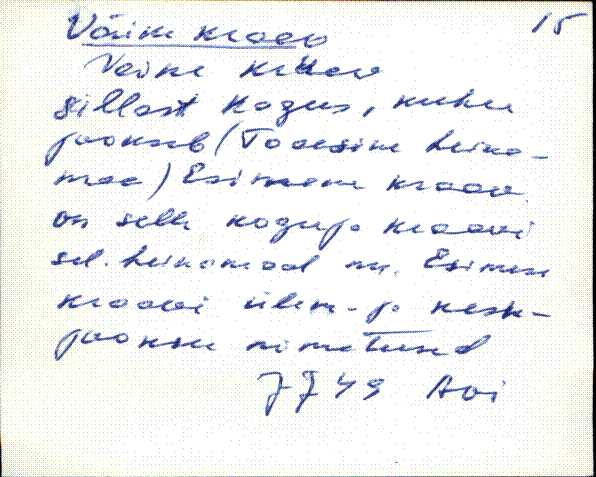 15
Väine kraav
Veine kraav
sillast Kogus, kuhu
jookseb (Toaesine heina-
maa) Esimene kraav
on selle koguja kraavi
sel. heinamaal nn. Esimese
kraavi ülem- ja kesk-
jooksu nimetused
JJ 49 Avi